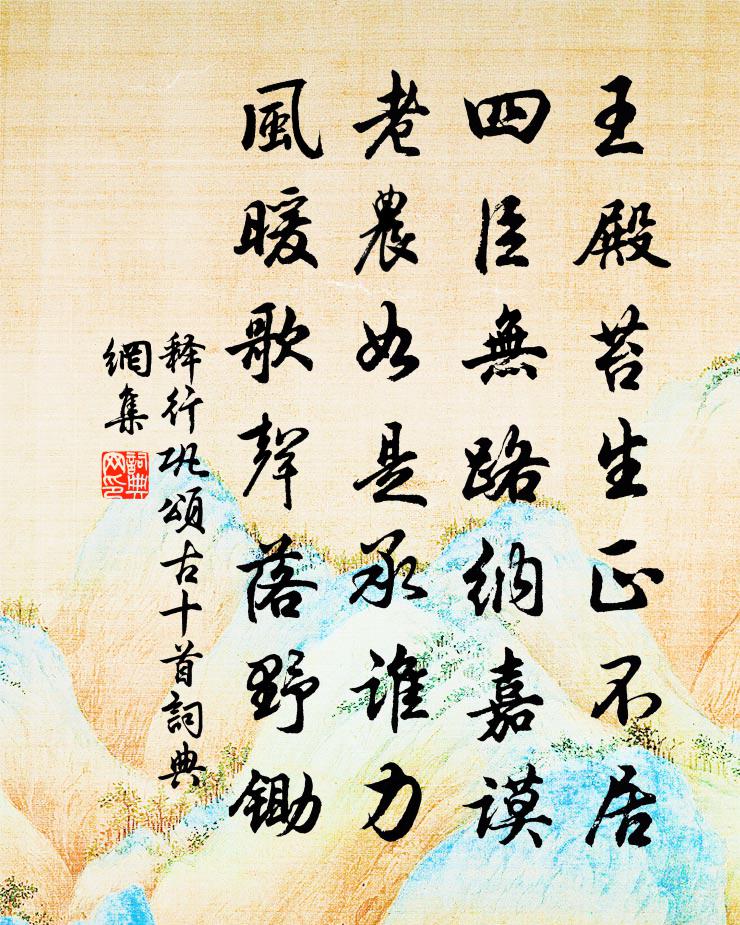 王殿苔生正不居
四臣無路納嘉謨
老農如是承誰力
風暖歌聲落野鋤
释行巩頌古十首詞典
網集
詞典
网印